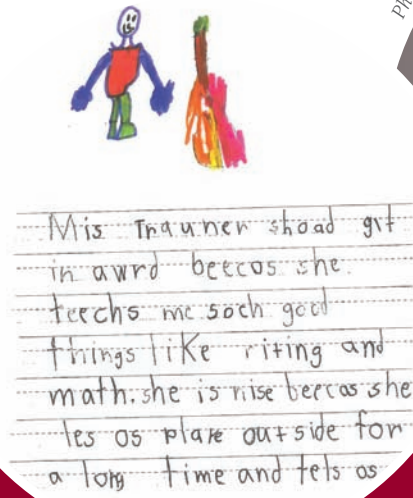 Mis Trauner shoad git
in awrd beecos she
teechs me soch good
things like riting and
math. she is nise beecos she
les os plare outside for
a long time and tels os